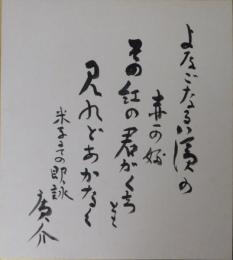 よなごなる濱の
赤可が
その紅の君がくちとも
見れどあかなく
米子での即詠
廣介